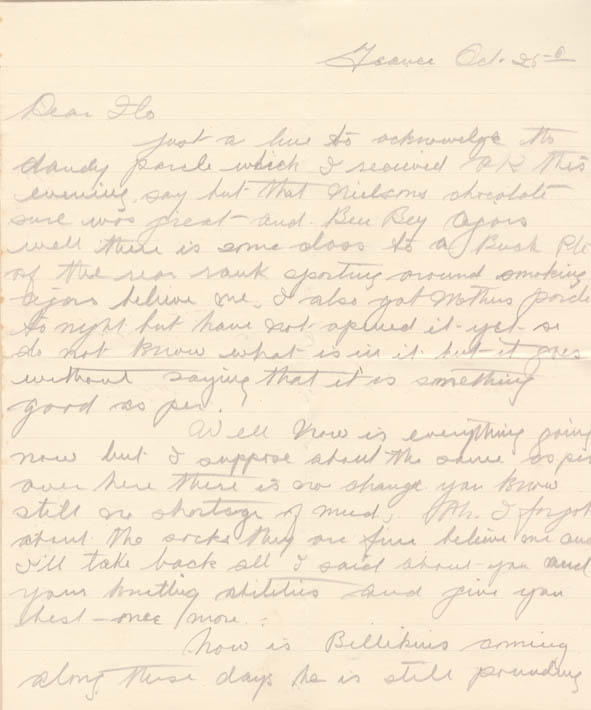 France Oct. 25th
Dear Flo
Just a line to acknowelge the
dandy parcle which I received O.K. this
evening, say but that Nielsons chocolate
sure was great and Ben Bey cigars
well there is some class to a Buck Pte
of the rear rank sporting around smoking
cigars believe me. I also got Mothers parcle
to night but have not opened it yet so
do not know what is in it but it goes
without saying that it is something
good as per.
Well how is everything going
now but I suppose about the same as per
over here there is no change you know
still no shortage of mud. Oh. I forgot
about the socks they are fine believe me and
I'll take back all I said about you and
your knitting abilities and give you
best once more.
How is Billikins coming
along these days he is still pounding